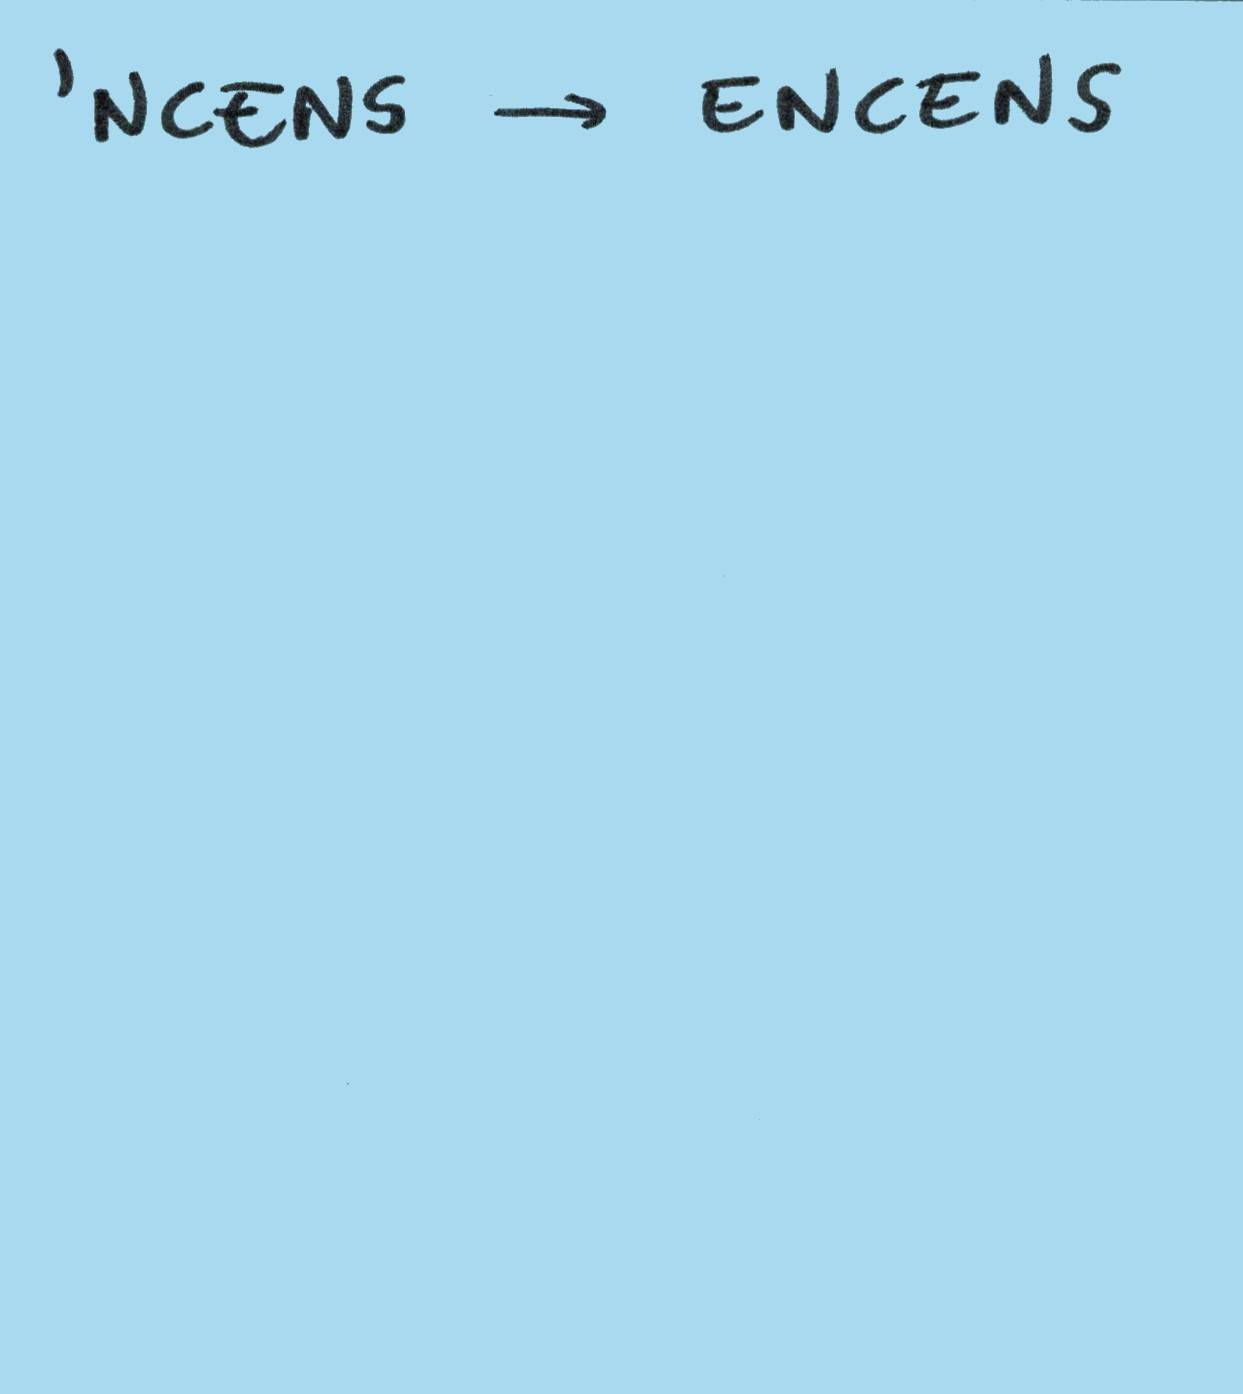 'NCENS → ENCENS